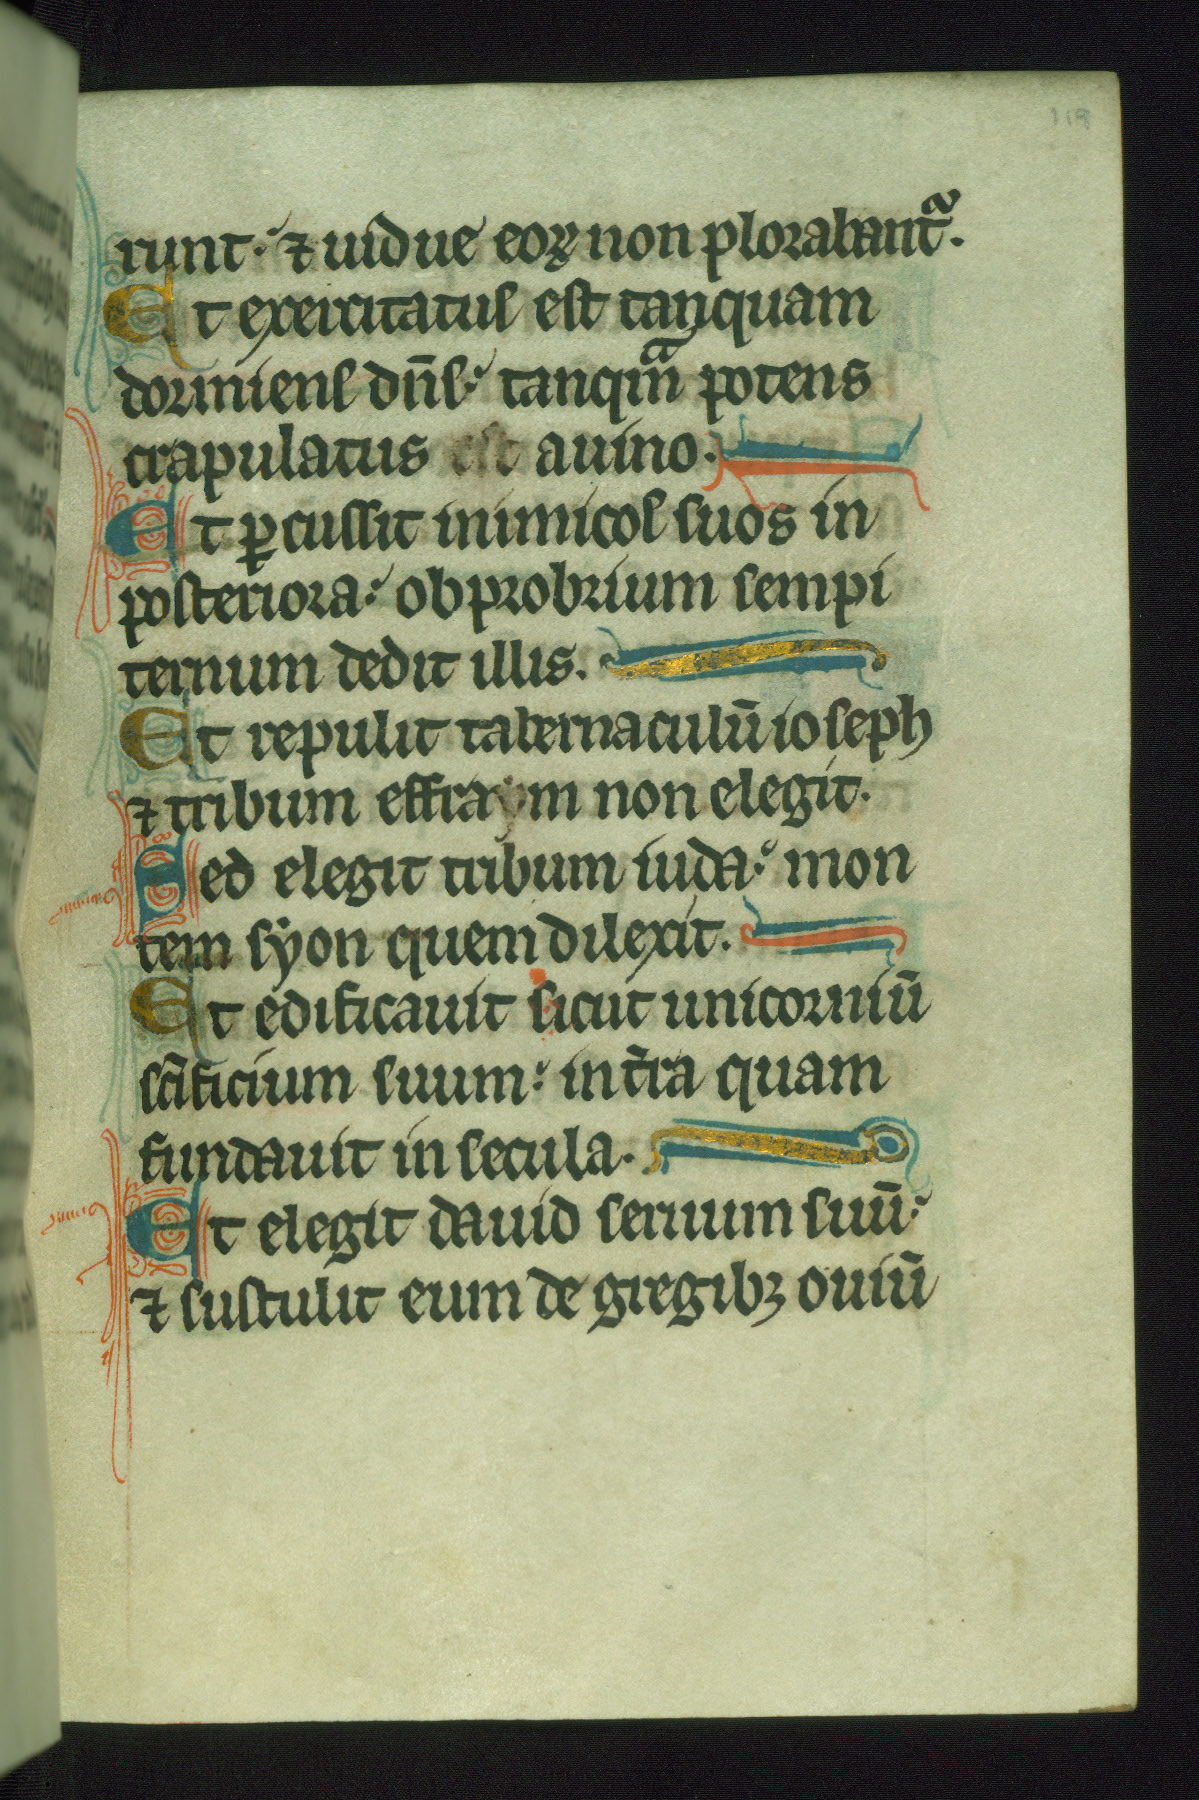 119
runt· ⁊ uidue eoꝝ non plorabant᷑.
Et exercitatus est tanquam
dormiens dn̄s· tanqᷓm potens
crapulatus est auino.
Et ꝑcussit inimicos suos in
posteriora· obprobrium sempi
ternum dedit illis.
Et repulit tabernaculū ioseph
⁊ tribum effraym non elegit.
Sed elegit tribum iuda· mon
tem syon quem dilexit.
Et edificauit sicut unicorniū
sc̄ificium suum· in t̄ra quam
fundauit in secula.
Et elegit dauid seruum suū·
⁊ sustulit eum de gregibꝫ ouiū